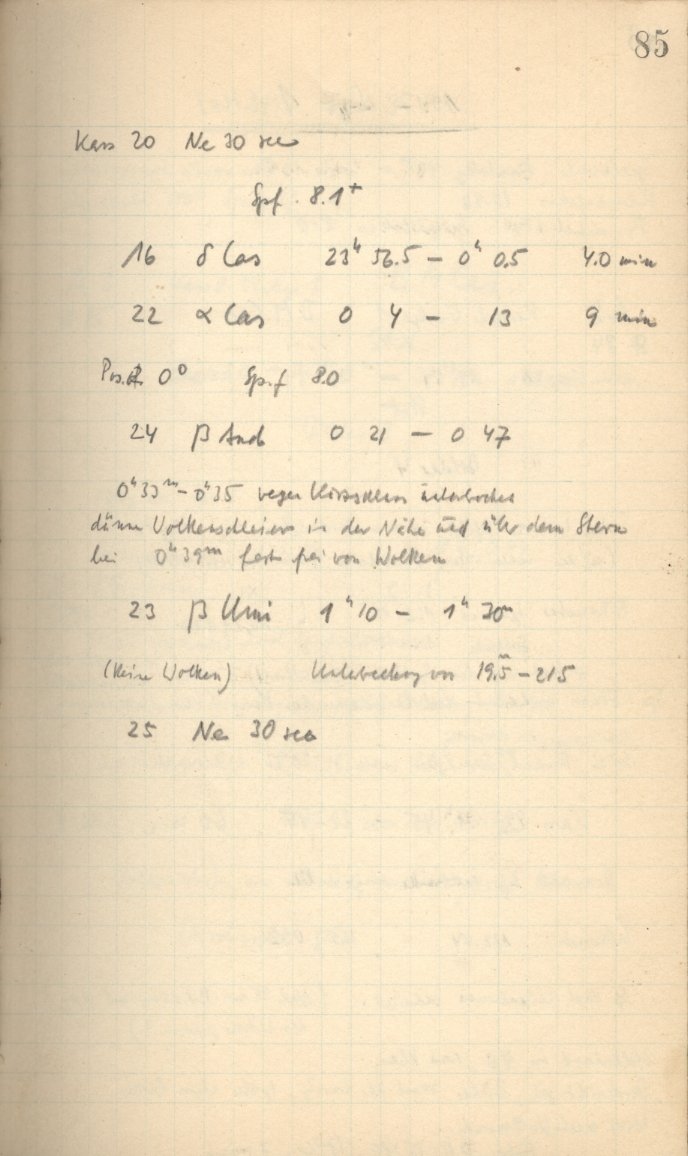 85
Kass 20 Ne 30 sec
Spf. 8.1+
16 δ Cas 23h 56.5 – 0h 0.5 4.0 min
22 α Cas 0 4 – 13 9 min
Pos. 0° Sp.f 8.0
24 β And 0 21 – 0 47
0h33m – 0h35 wegen unterbrochen
dünne Wolkenschleier in der Nähe und über dem Stern
bei 0h39m fast frei von Wolken
23 β Umi 1h10 – 1h30m
(Keine Wolken) Unterbrechung von 19.5m – 21.5
25 Ne 30 sec